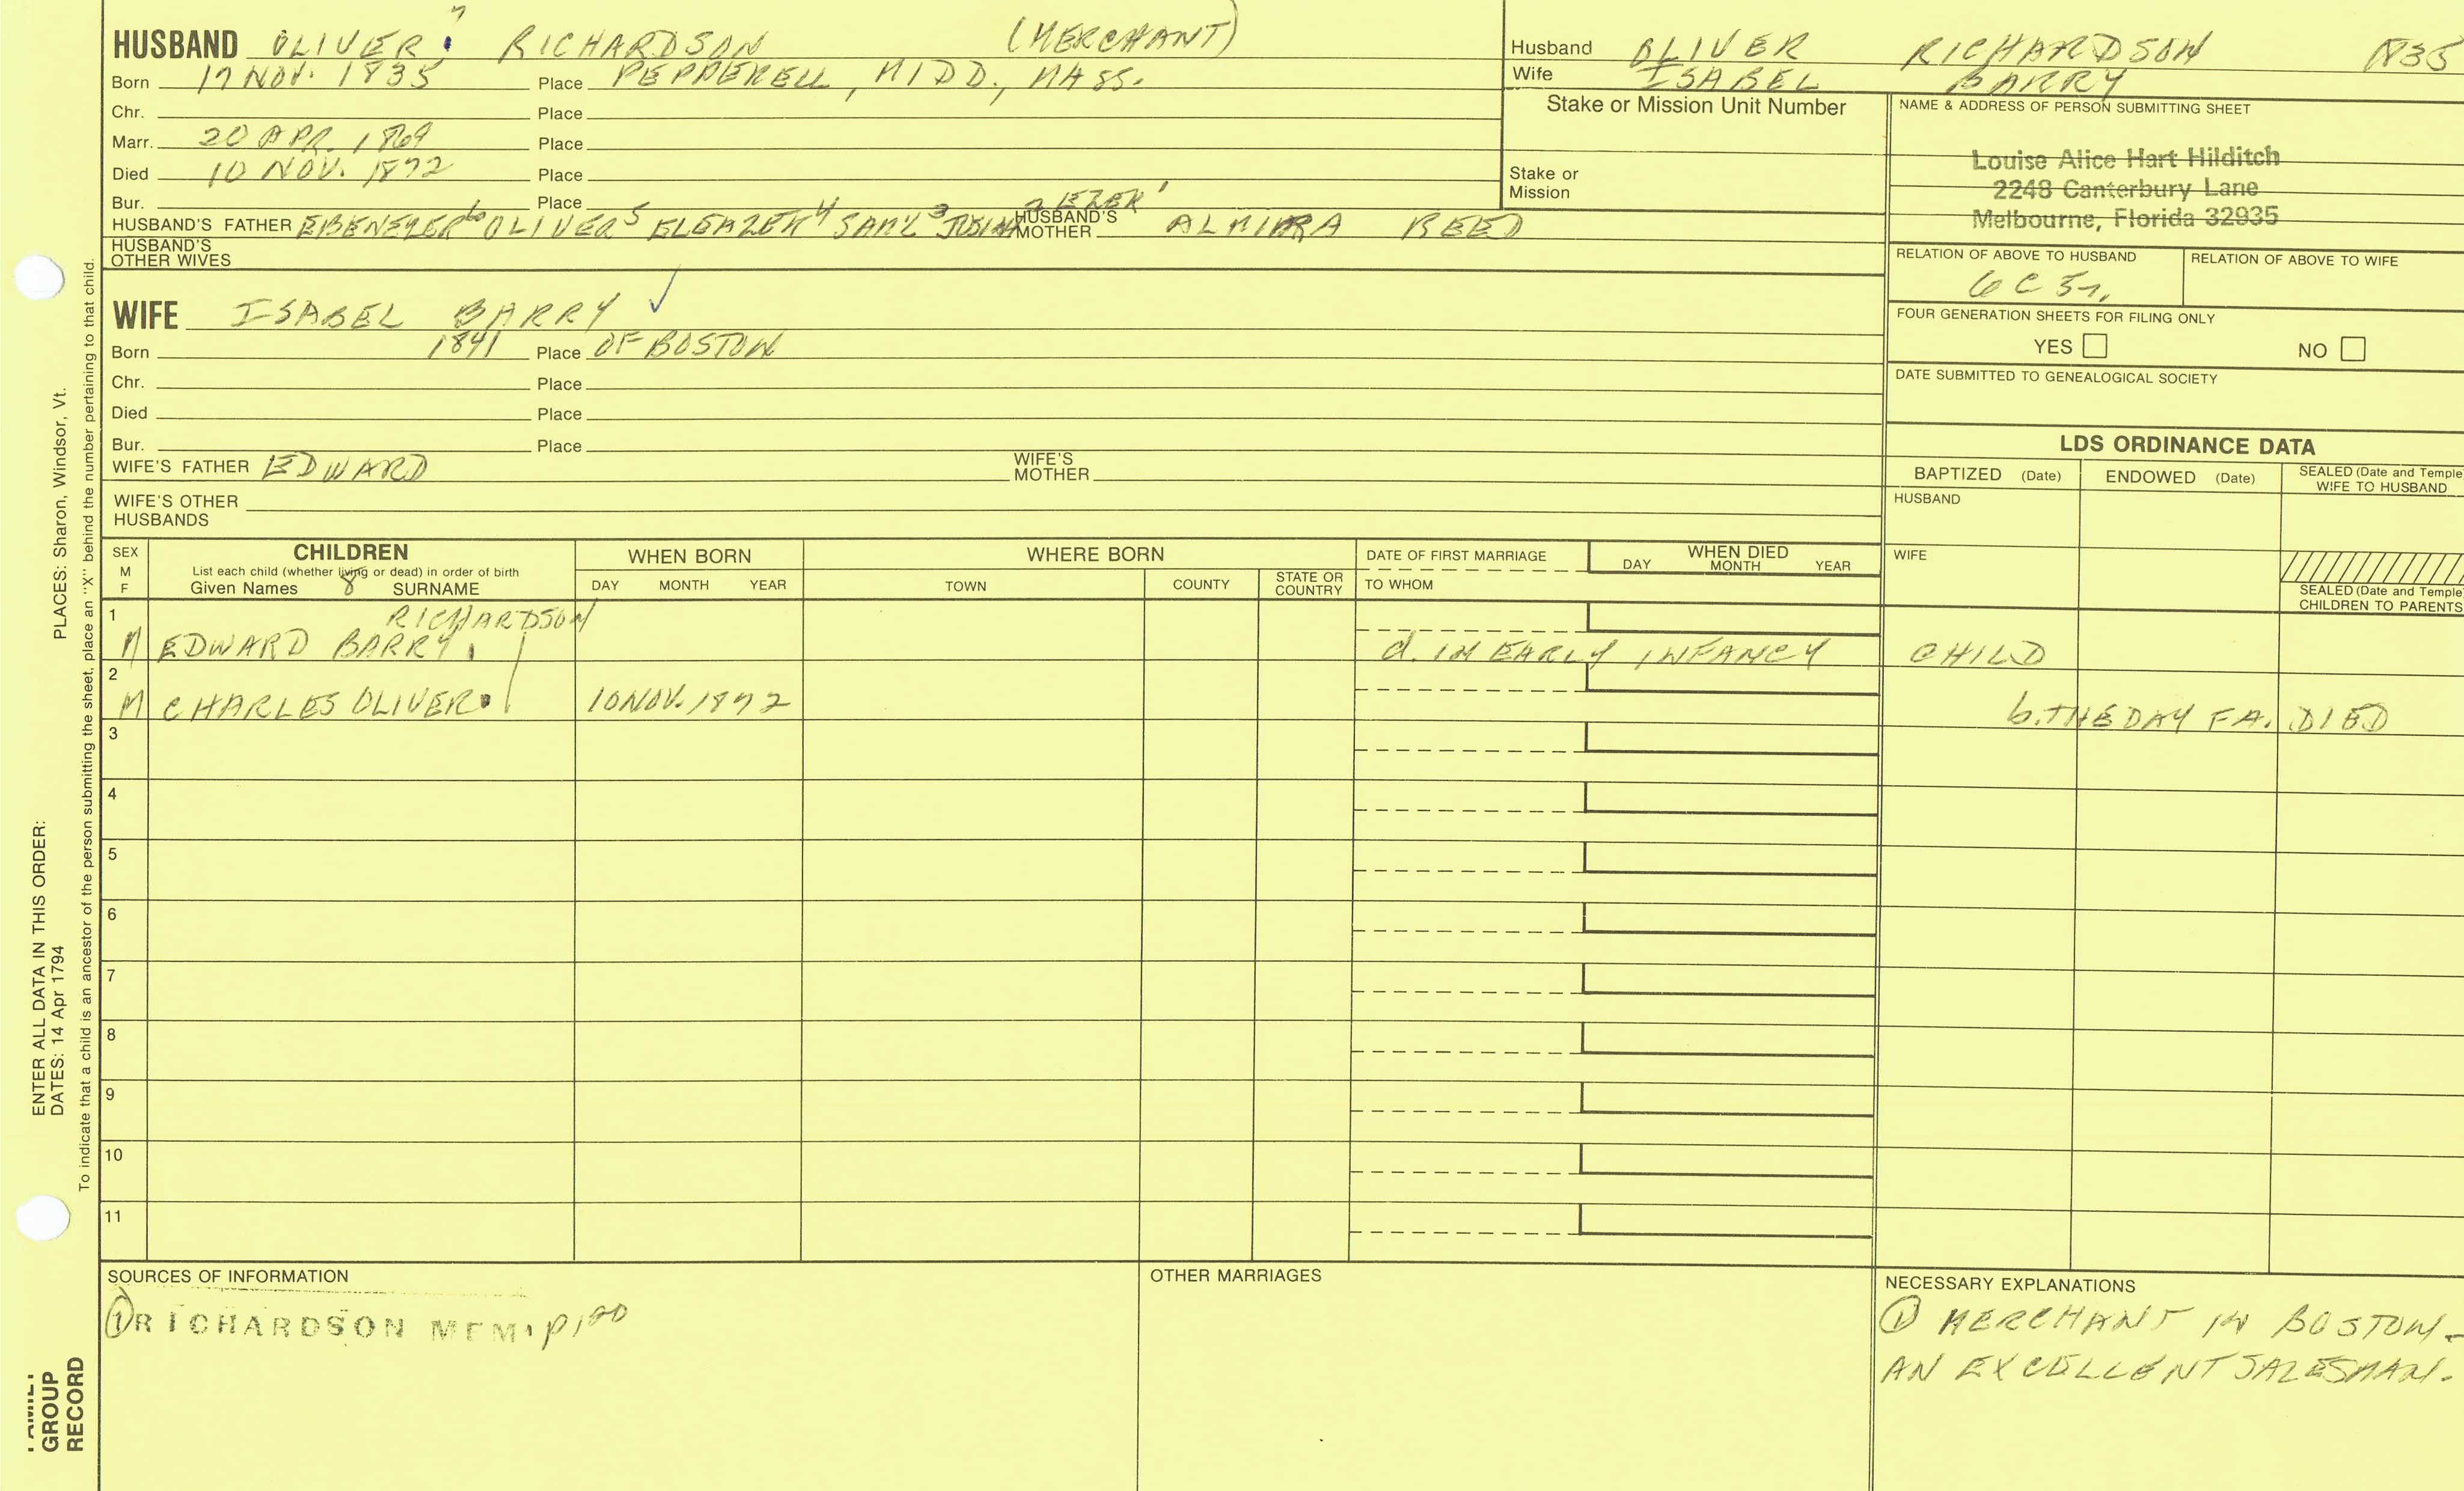 7
HUSBAND OLIVER RICHARDSON (MERCHANT)
Born 17 NOV. 1835 Place PEPPERELL, MIDD., MASS.
Chr. Place
Marr. 20 APR. 1869 Place
Died 10 NOV. 1872 Place
Bur. Place
2 EZEK 1
HUSBAND'S FATHER EBENEZER 6 OLIVER 5 ELEAZER 4 SAML 3 JOSIAH HUSBAND'S MOTHER ALMIRA REED
HUSBAND'S OTHER WIVES
Husband OLIVER RICHARDSON 1835
Wife ISABEL BARRY
Stake or Mission Unit Number
Stake or Mission
NAME & ADDRESS OF PERSON SUBMITTING SHEET
Louise Alice Hart Hilditch
2248 Canterbury Lane
Melbourne, Florida 32935
RELATION OF ABOVE TO HUSBAND RELATION OF ABOVE TO WIFE
6 C 3r.
FOUR GENERATION SHEETS FOR FILING ONLY
YES NO
DATE SUBMITTED TO GENEALOGICAL SOCIETY
WIFE ISABEL BARRY ✓
Born 1841 Place OF BOSTON
Chr. Place
Died Place
Bur. Place
WIFE'S FATHER EDWARD WIFE'S MOTHER
WIFE'S OTHER HUSBANDS
LDS ORDINANCE DATA
BAPTIZED (Date) ENDOWED (Date) SEALED (Date and Temple) WIFE TO HUSBAND
HUSBAND
WIFE
SEALED (Date and Temple) CHILDREN TO PARENTS
SEX M F
CHILDREN
List each child (whether living or dead) in order of birth
Given Names 8 SURNAME
WHEN BORN
DAY MONTH YEAR
WHERE BORN
TOWN COUNTY STATE OR COUNTRY
DATE OF FIRST MARRIAGE
TO WHOM
WHEN DIED
DAY MONTH YEAR
1 RICHARDSON
M EDWARD BARRY d. IN EARLY INFANCY CHILD
2
M CHARLES OLIVER 10 NOV. 1872 b. THE DAY FA. DIED
3
4
5
6
7
8
9
10
11
SOURCES OF INFORMATION
① RICHARDSON MEM. p
OTHER MARRIAGES
NECESSARY EXPLANATIONS
① MERCHANT IN BOSTON-
AN EXCELLENT SALESMAN.
PLACES: Sharon, Windsor, Vt.
ENTER ALL DATA IN THIS ORDER:
DATES: 14 Apr 1794
To indicate that a child is an ancestor of the person submitting the sheet, place an "X" behind the number pertaining to that child.
FAMILY
GROUP
RECORD